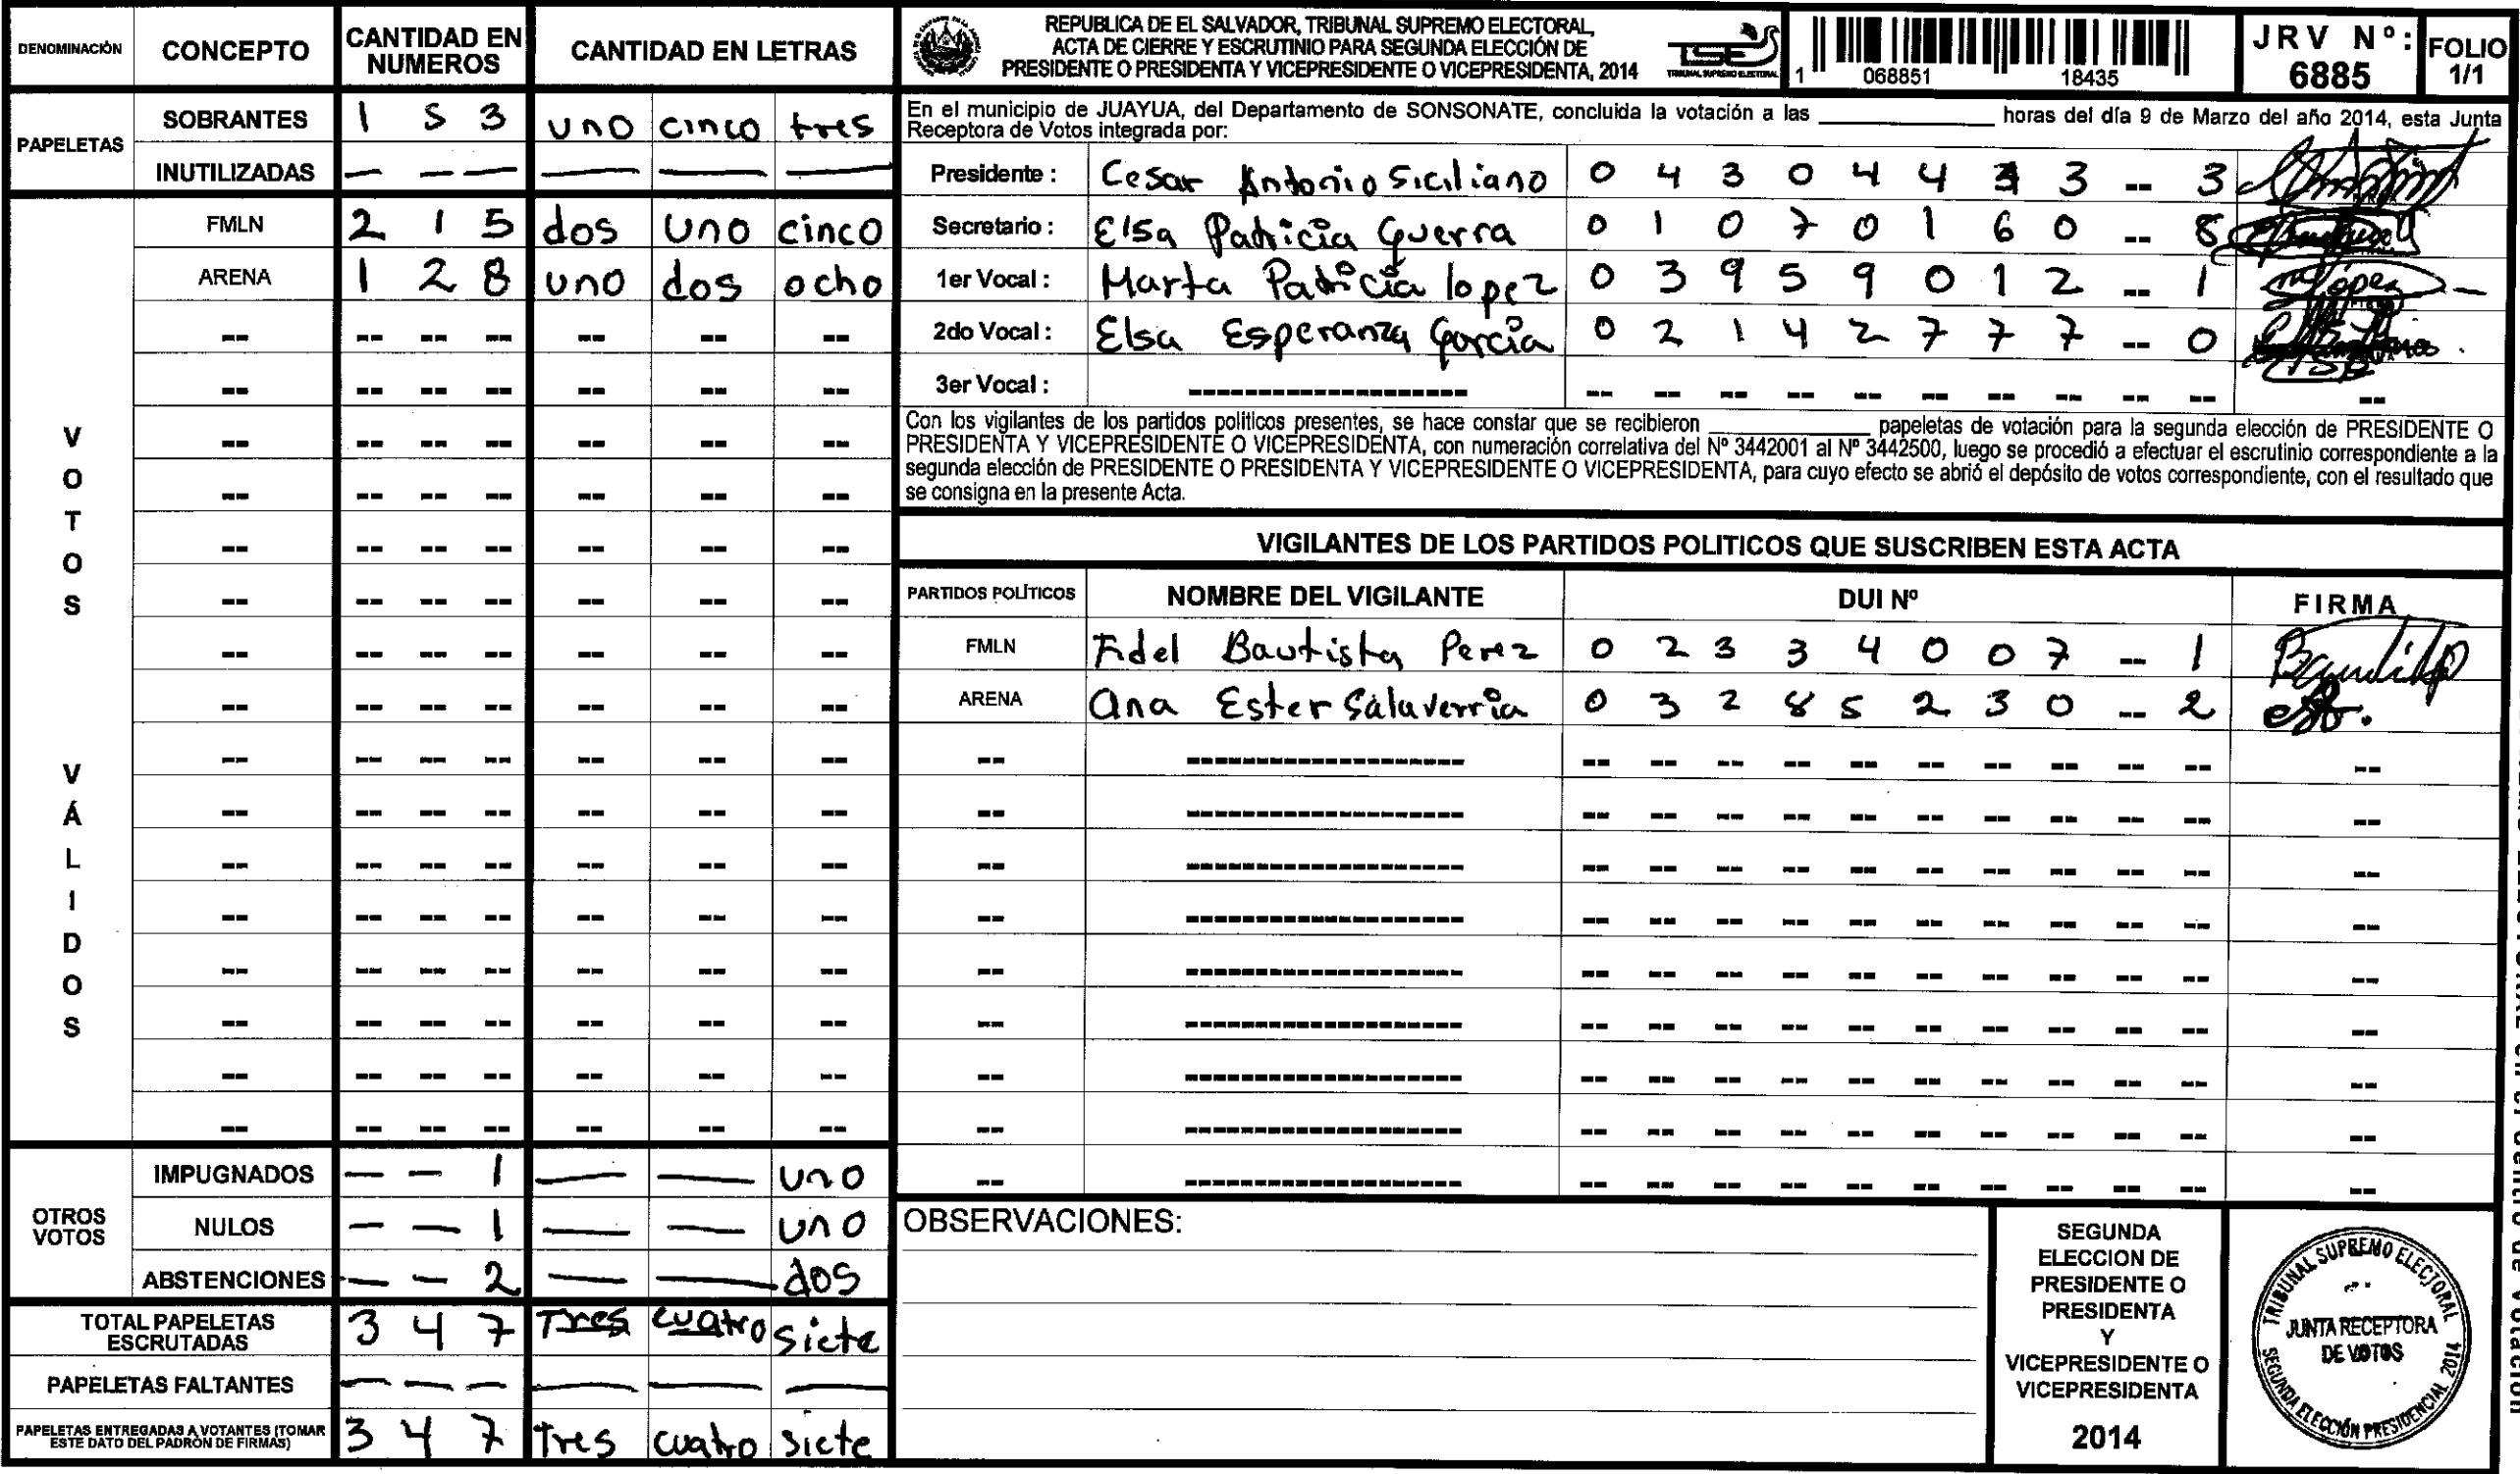 DENOMINACIÓN CONCEPTO CANTIDAD EN NUMEROS CANTIDAD EN LETRAS
PAPELETAS
SOBRANTES 1 5 3 uno cinco tres
INUTILIZADAS — — — — — —
VOTOS VÁLIDOS
FMLN 2 1 5 dos uno cinco
ARENA 1 2 8 uno dos ocho
OTROS VOTOS
IMPUGNADOS — — 1 — — uno
NULOS — — 1 — — uno
ABSTENCIONES — — 2 — — dos
TOTAL PAPELETAS ESCRUTADAS 3 4 7 Tres cuatro siete
PAPELETAS FALTANTES — — — — — —
PAPELETAS ENTREGADAS A VOTANTES (TOMAR ESTE DATO DEL PADRÓN DE FIRMAS) 3 4 7 Tres cuatro siete
REPUBLICA DE EL SALVADOR, TRIBUNAL SUPREMO ELECTORAL,
ACTA DE CIERRE Y ESCRUTINIO PARA SEGUNDA ELECCIÓN DE
PRESIDENTE O PRESIDENTA Y VICEPRESIDENTE O VICEPRESIDENTA, 2014
TSE
TRIBUNAL SUPREMO ELECTORAL
1 068851 18435
JRV Nº: 6885
FOLIO 1/1
En el municipio de JUAYUA, del Departamento de SONSONATE, concluida la votación a las ____ horas del día 9 de Marzo del año 2014, esta Junta
Receptora de Votos integrada por:
Presidente : Cesar Antonio Siciliano 0 4 3 0 4 4 3 3 -- 3
Secretario : Elsa Patricia Guerra 0 1 0 7 0 1 6 0 -- 8
1er Vocal : Marta Patricia lopez 0 3 9 5 9 0 1 2 -- 1
2do Vocal : Elsa Esperanza Garcia 0 2 1 4 2 7 7 7 -- 0
3er Vocal :
Con los vigilantes de los partidos políticos presentes, se hace constar que se recibieron ____ papeletas de votación para la segunda elección de PRESIDENTE O
PRESIDENTA Y VICEPRESIDENTE O VICEPRESIDENTA, con numeración correlativa del Nº 3442001 al Nº 3442500, luego se procedió a efectuar el escrutinio correspondiente a la
segunda elección de PRESIDENTE O PRESIDENTA Y VICEPRESIDENTE O VICEPRESIDENTA, para cuyo efecto se abrió el depósito de votos correspondiente, con el resultado que
se consigna en la presente Acta.
VIGILANTES DE LOS PARTIDOS POLITICOS QUE SUSCRIBEN ESTA ACTA
PARTIDOS POLÍTICOS NOMBRE DEL VIGILANTE DUI Nº FIRMA
FMLN Fidel Bautista Perez 0 2 3 3 4 0 0 7 -- 1
ARENA Ana Ester Salaverria 0 3 2 8 5 2 3 0 -- 2
OBSERVACIONES:
SEGUNDA
ELECCION DE
PRESIDENTE O
PRESIDENTA
Y
VICEPRESIDENTE O
VICEPRESIDENTA
2014
TRIBUNAL SUPREMO ELECTORAL
JUNTA RECEPTORA
DE VOTOS
SEGUNDA ELECCIÓN PRESIDENCIAL 2014